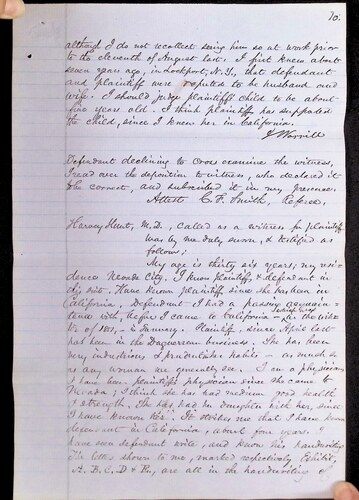 70.
although I do not recollect seeing him so at work prior
to the eleventh of August last. I first knew about
seven years ago, in Lockport, N.Y., that defendant
and plaintiff were reputed to be husband and
wife. I should judge plaintiffs child to be about
five years old. I think plaintiff has supported
the child, since I knew her in California.
J Worrill
Defendant declining to cross examine the witness,
I read over the deposition to witness, who declared it
to be correct, and subscribed it in my presence.
Attest C. F. Smith, Referee.
Harvey Hunt, M.D., called as a witness for plaintiff
was by me duly sworn, & testified as
follows;
My age is thirty six years; my resi-
dence Nevada City. I know plaintiff, & defendant in
this suit. Have known plaintiff since she has been in
California. Defendant I had a passing acquain-
tance with, before I came to California in the win-
of 1851, - in January. Plaintiff, since April last
has been in the Daguerrean business. She has been
very industrious & prudent in habits - as much so
as any woman we generally see. I am a physician,
I have been plaintiffs physician since she came to
Nevada; I think she has had medium good health
& strength. She has had no daughter with her, since
I have known her. It strikes me that I have known
defendant in California, about four years. I
have seen defendant write, and know his handwriting.
The letters shown to me, marked respectively Exhibit,
A. B. C. D & E, are all in the handwriting of